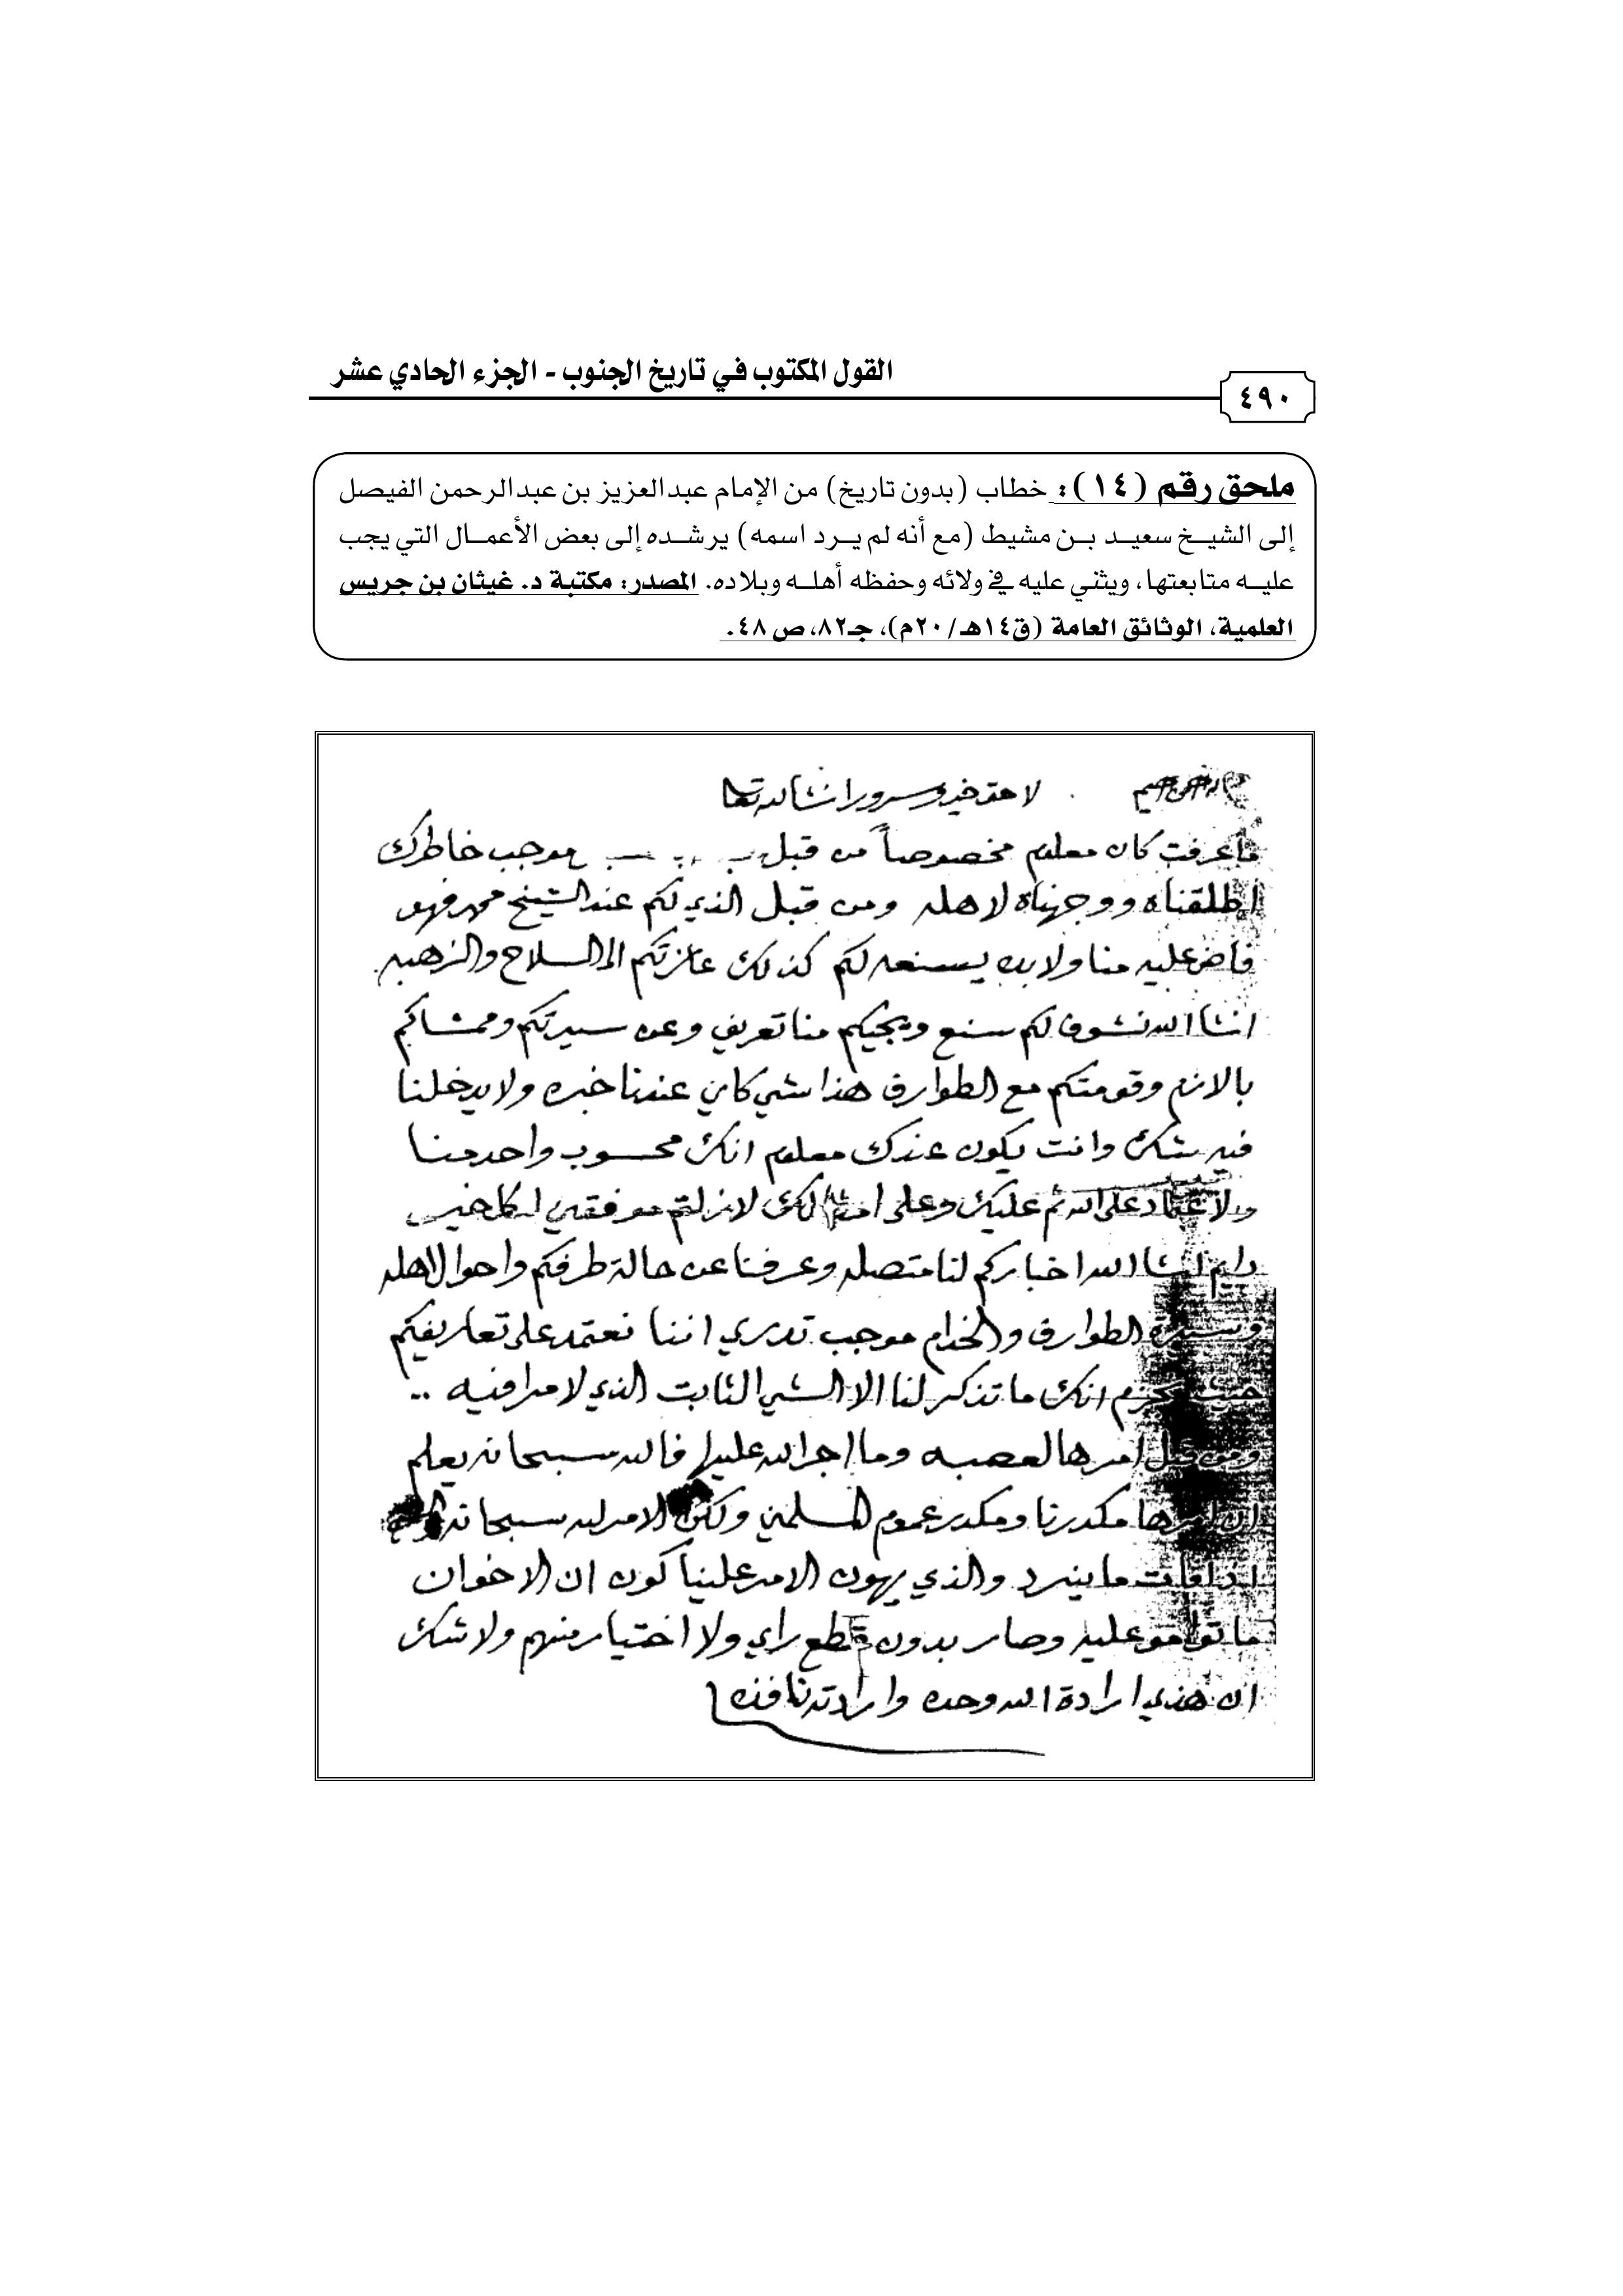 القول المكتوب في تاريخ الجنوب - الجزء الحادي عشر
٤٩٠
ملحق رقم (١٤): خطاب (بدون تاريخ) من الإمام عبدالعزيز بن عبدالرحمن الفيصل
إلى الشيخ سعيد بن مشيط (مع أنه لم يرد اسمه) يرشده إلى بعض الأعمال التي يجب
عليه متابعتها، ويثني عليه في ولائه وحفظه أهله وبلاده. المصدر: مكتبة د. غيثان بن جريس
العلمية، الوثائق العامة (ق١٤هـ/٢٠م)، جـ٨٢، ص٤٨.
لاحقه خير وسرور انشالله تعا
ماعرفت كان معلوم مخصوصاً من قبل موجب خاطرك
اطلقناه ووجهناه لاهله ومن قبل الذي لكم عند الشيخ محمد فهو
فاض عليه منا ولابده يسنعه لكم كذلك عازتكم الى السلاح والزهبه
انشا الله نشوف لكم سنع ويجيكم منا تعريف وعن سيرتكم وممشاكم
بالازم وقومتكم مع الطوارف هذا شي كاين عندنا خبره ولا يدخلنا
فيه شك وانت يكون عندك معلوم انك محسوب واحد منا
ولاعتماد على الله ثم عليك وعلى لكن لازلتم موفقين لكل خير
دايم انشا الله اخباركم لنا متصله وعرفنا عن حالة طرفكم واحوال اهله
وسيرة الطوارف والخدام موجب تدري اننا نعتمد على تعاريفكم
انك ما تذكر لنا الا الشي الثابت الذي لا مرا فيه ..
ومن قبل امرها العصبه وما اجرا الله عليها فالله سبحانه يعلم
ان مكدرنا ومكدر عموم المسلمين ولكن الامر لله سبحانه
ما ينرد والذي يهون الامر علينا كون ان الاخوان
ما توامو عليه وصار بدون قطع راي ولا اختيار منهم ولا شك
ان هذي ارادة الله وحده وارادته نافذه